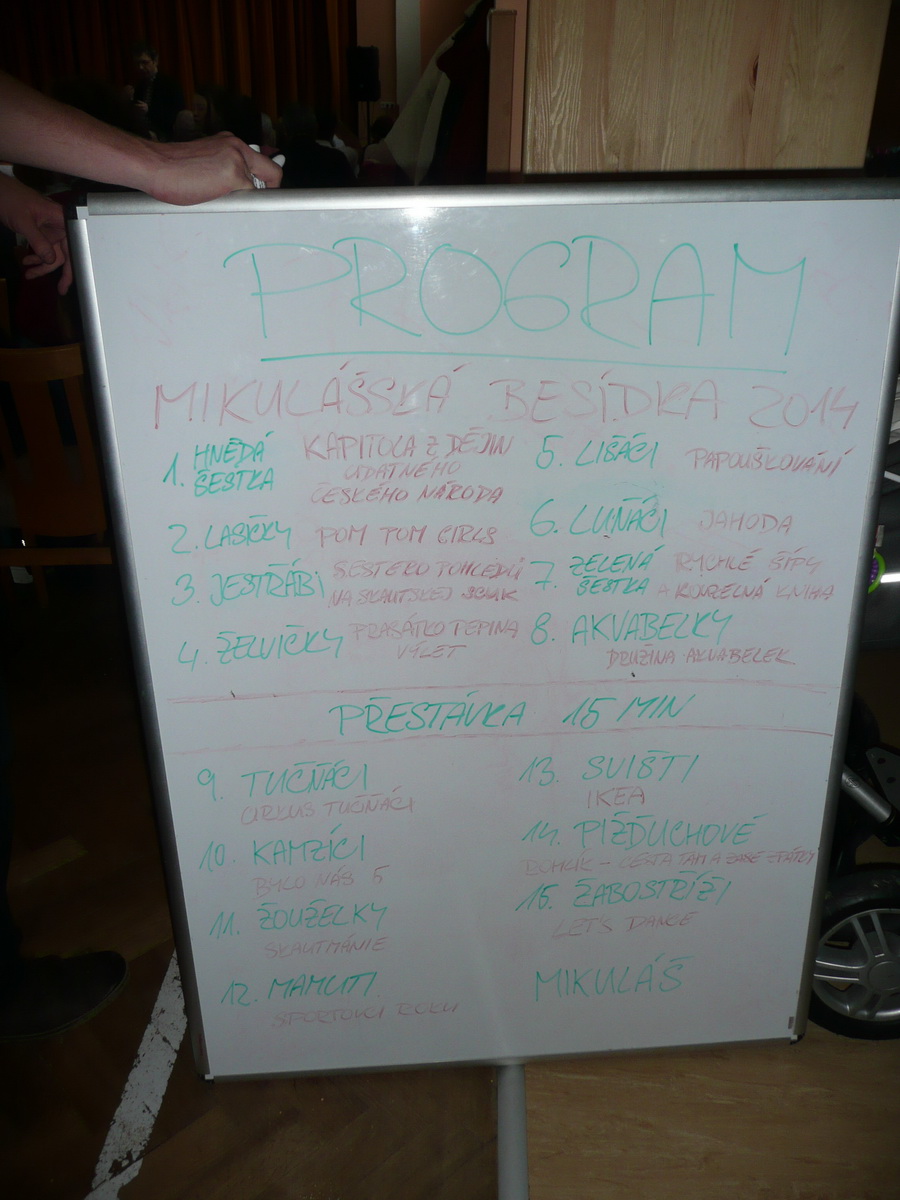 PROGRAM
MIKULÁŠSKÁ BESÍDKA 2014
1. HNĚDÁ ŠESTKA
KAPITOLA Z DĚJIN
UDATNÉHO
ČESKÉHO NÁRODA
2. LASIČKY POM TOM GIRLS
3. JESTŘÁBI
ŠESTERO POHLEDŮ
NA SKAUTSKEJ
4. ŽELVIČKY
PRASÁTKO PEPINA
VÝLET
5. LIŠÁCI PAPOUŠKOVÁNÍ
6. LUŇÁCI JAHODA
7. ZELENÁ ŠESTKA
RYCHLÉ ŠÍPY
A KOUZELNÁ KNIHA
8. AKVABELKY
DRUŽINA AKVABELEK
PŘESTÁVKA 15 MIN
9. TUČŇÁCI
CIRKUS TUČŇÁCI
10. KAMZÍCI
BYLO NÁS 5
11. ŽOUŽELKY
SKAUTMÁNIE
12. MAMUTI
SPORTOVCI ROKU
13. SVIŠTI
IKEA
14. PIŽĎUCHOVÉ
CESTA TAM A ZASE ZPÁTKY
15. ŽABOSTŘÍŽI
LET'S DANCE
MIKULÁŠ